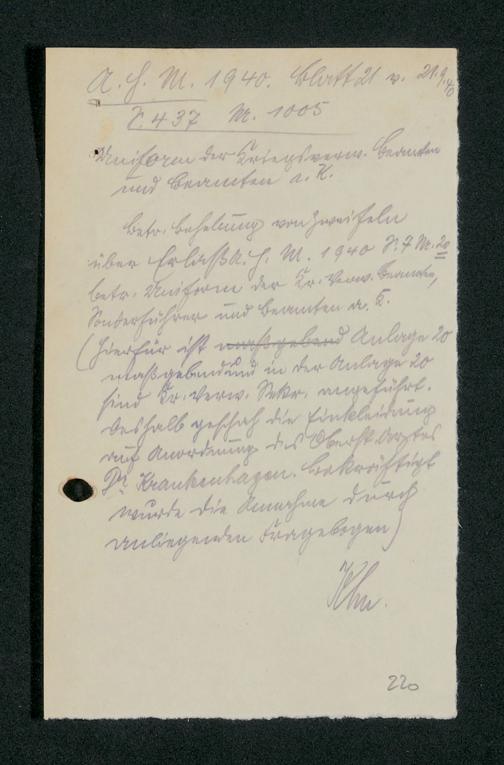 A. H. M. 1940. Blatt 21 v. 21.9.40
S. 437 Nr. 1005
Uniform der Kriegsverw. Beamten
und Beamten a. K.
Betr. Behebung von Zweifeln
über Erlaß A. H. M. 1940 S. 7 Nr. 20
betr. Uniform der Kr. Verw. Beamten,
Sonderführer und Beamten a. K.
(Hierfür ist maßgebend Anlage 20
maßgebend und in der Anlage 20
sind Kr. Verw. Sekr. angeführt.
Deshalb geschah die Einkleidung
auf Anordnung des Oberst. Arztes
Dr. Krankenhagen. Bekräftigt
wurde die Annahme durch
anliegenden Fragebogen)
220